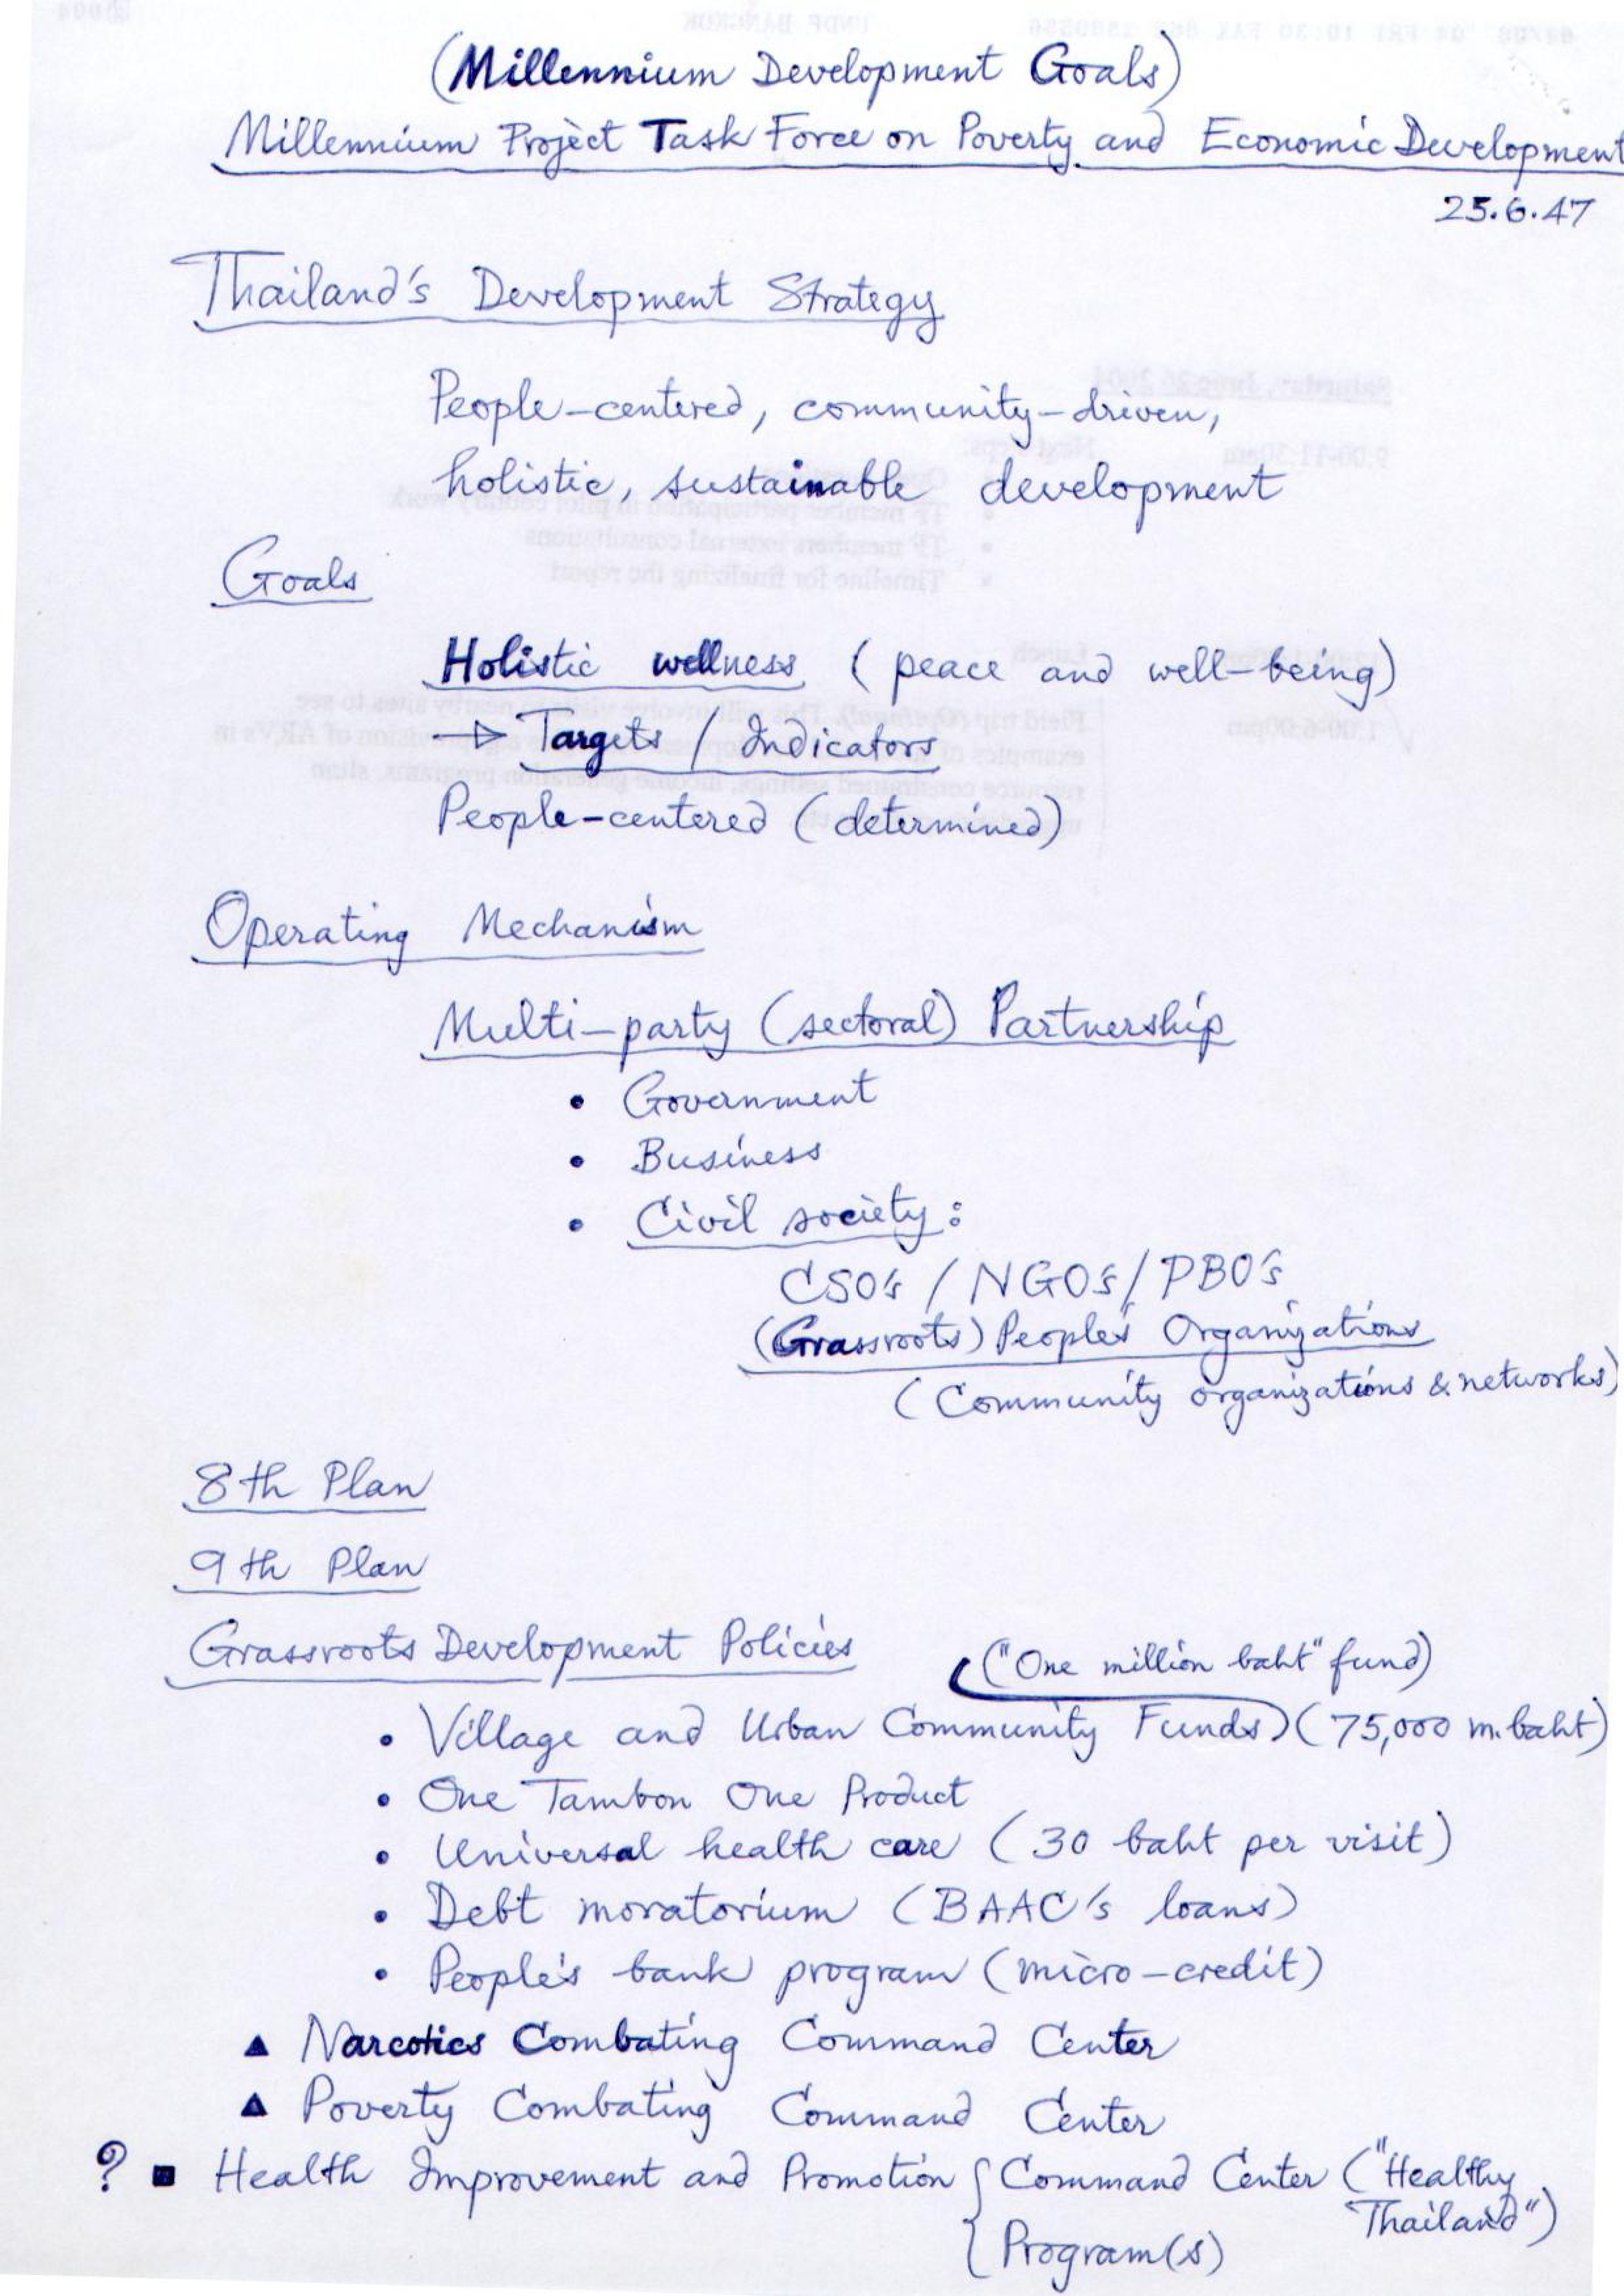 (Millennium Development Goals)
Millennium Project Task Force on Poverty and Economic Development
25.6.47
Thailand's Development Strategy
People-centered, community-driven,
holistic, sustainable development
Goals
Holistic wellness (peace and well-being)
→ Targets / Indicators
People-centered (determined)
Operating Mechanism
Multi-party (sectoral) Partnership
• Government
• Business
• Civil society:
CSO's / NGO's / PBO's
(Grassroots) People's Organizations
(Community organizations & networks)
8th Plan
9th Plan
Grassroots Development Policies
("One million baht" fund)
• Village and Urban Community Funds) (75,000 m. baht)
• One Tambon One Product
• Universal health care (30 baht per visit)
• Debt moratorium (BAAC's loans)
• People's bank program (micro-credit)
▲ Narcotics Combating Command Center
▲ Poverty Combating Command Center
? ■ Health Improvement and Promotion { Command Center ("Healthy
Thailand")
Program(s)